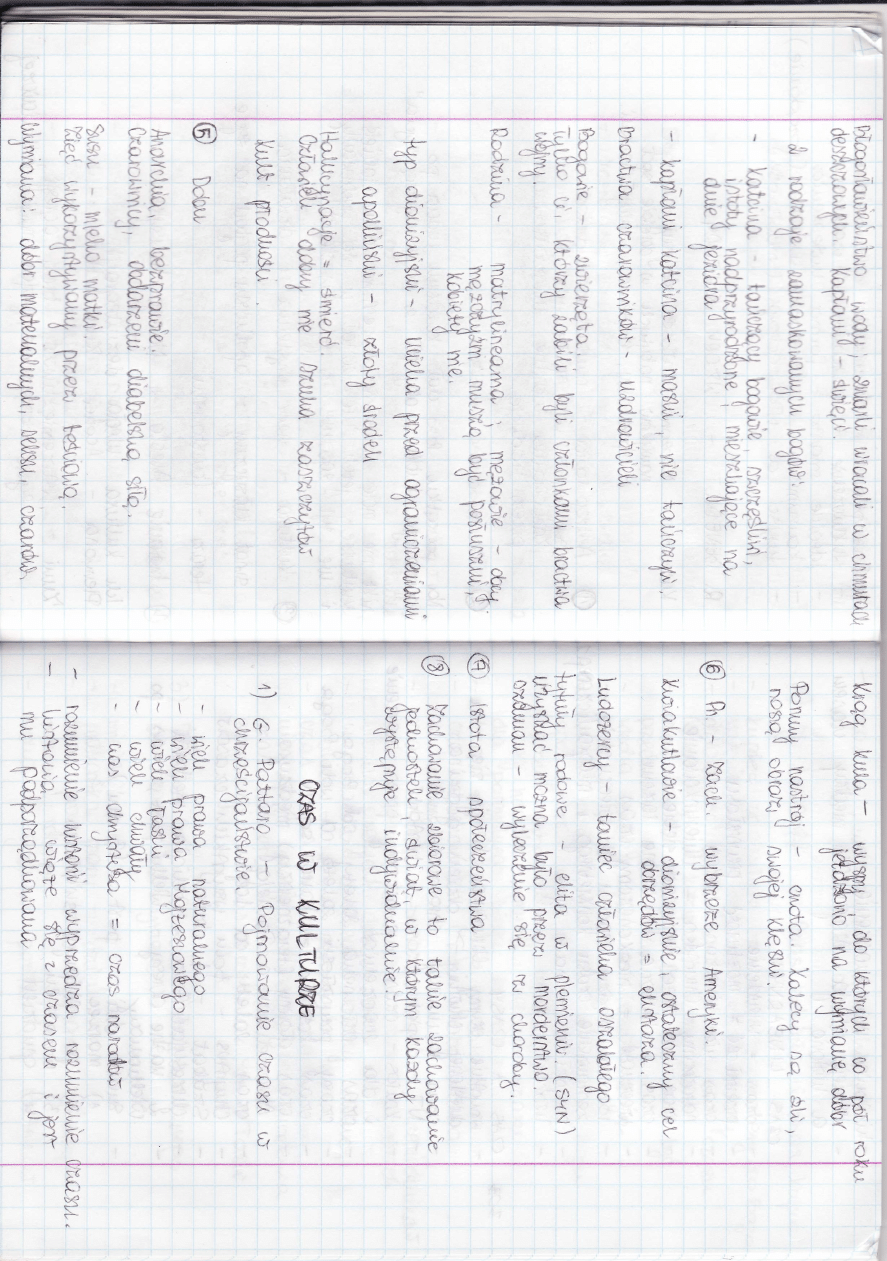 błogosławieństwo wody; zmarli wracali w chmurach
deszczowych. Kapłani - święci.
2 rodzaje zamaskowanych bogów:
- katcina - tańczący bogowie, szczęśliwi,
istoty nadprzyrodzone, mieszkające na
dnie jeziora
- kapłani katcina - maski, nie tańczyli.
Bractwa czarowników - uzdrowicieli
Bogowie - zwierzęta.
Tylko ci, którzy zabili byli członkami bractwa
wojny.
Rodzina - matrylinearna; mężowie - obcy.
mężczyźni muszą być posłuszni,
kobiety nie.
typ dionizyjski - ucieka przed ograniczeniami
apolliński - złoty środek
Halucynacje = śmierć.
Człowiek dobry nie szuka zaszczytów
kult płodności.
⑤ Dobu
Anarchia, bezprawie.
Czarownicy, obdarzeni diabelską siłą.
Susu - mleko matki.
Zięć wykorzystywany przez teściową.
Wymiana: dóbr materialnych, seksu, czarów,
Krąg kula - wyspy, do których co pół roku
jeżdżono na wymianę dóbr
Ponury nastrój - cnota. Kalecy są źli,
noszą obrazy swojej klęski.
⑥ Pn - zach. wybrzeże Ameryki.
Kwiakutlowie - dionizyjskie, ostateczny cel
obrzędów = ekstaza.
Ludożercy - taniec człowieka oszalałego
tytuły rodowe - elita w plemieniu. (SYN)
uzyskać można było przez morderstwo.
szaman - wyleczenie się z choroby.
⑦ Istota społeczeństwa
⑧ Zachowanie zbiorowe to takie zachowanie
jednostek, świat, w którym każdy
występuje indywidualnie.
CZAS W KULTURZE
1) G. Pattaro - Pojmowanie czasu w
chrześcijaństwie.
- wiek prawa naturalnego
- wiek prawa Mojżeszowego
- wiek łaski
- wiek chwały
- czas chrystusa = czas narodów
- rozumienie historii wyprzedza rozumienie czasu.
- historia wiąże się z czasem i jest
mu podporządkowana